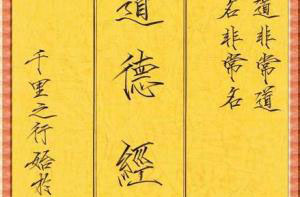 道非常道
名非常名
道德經
千里之行始於